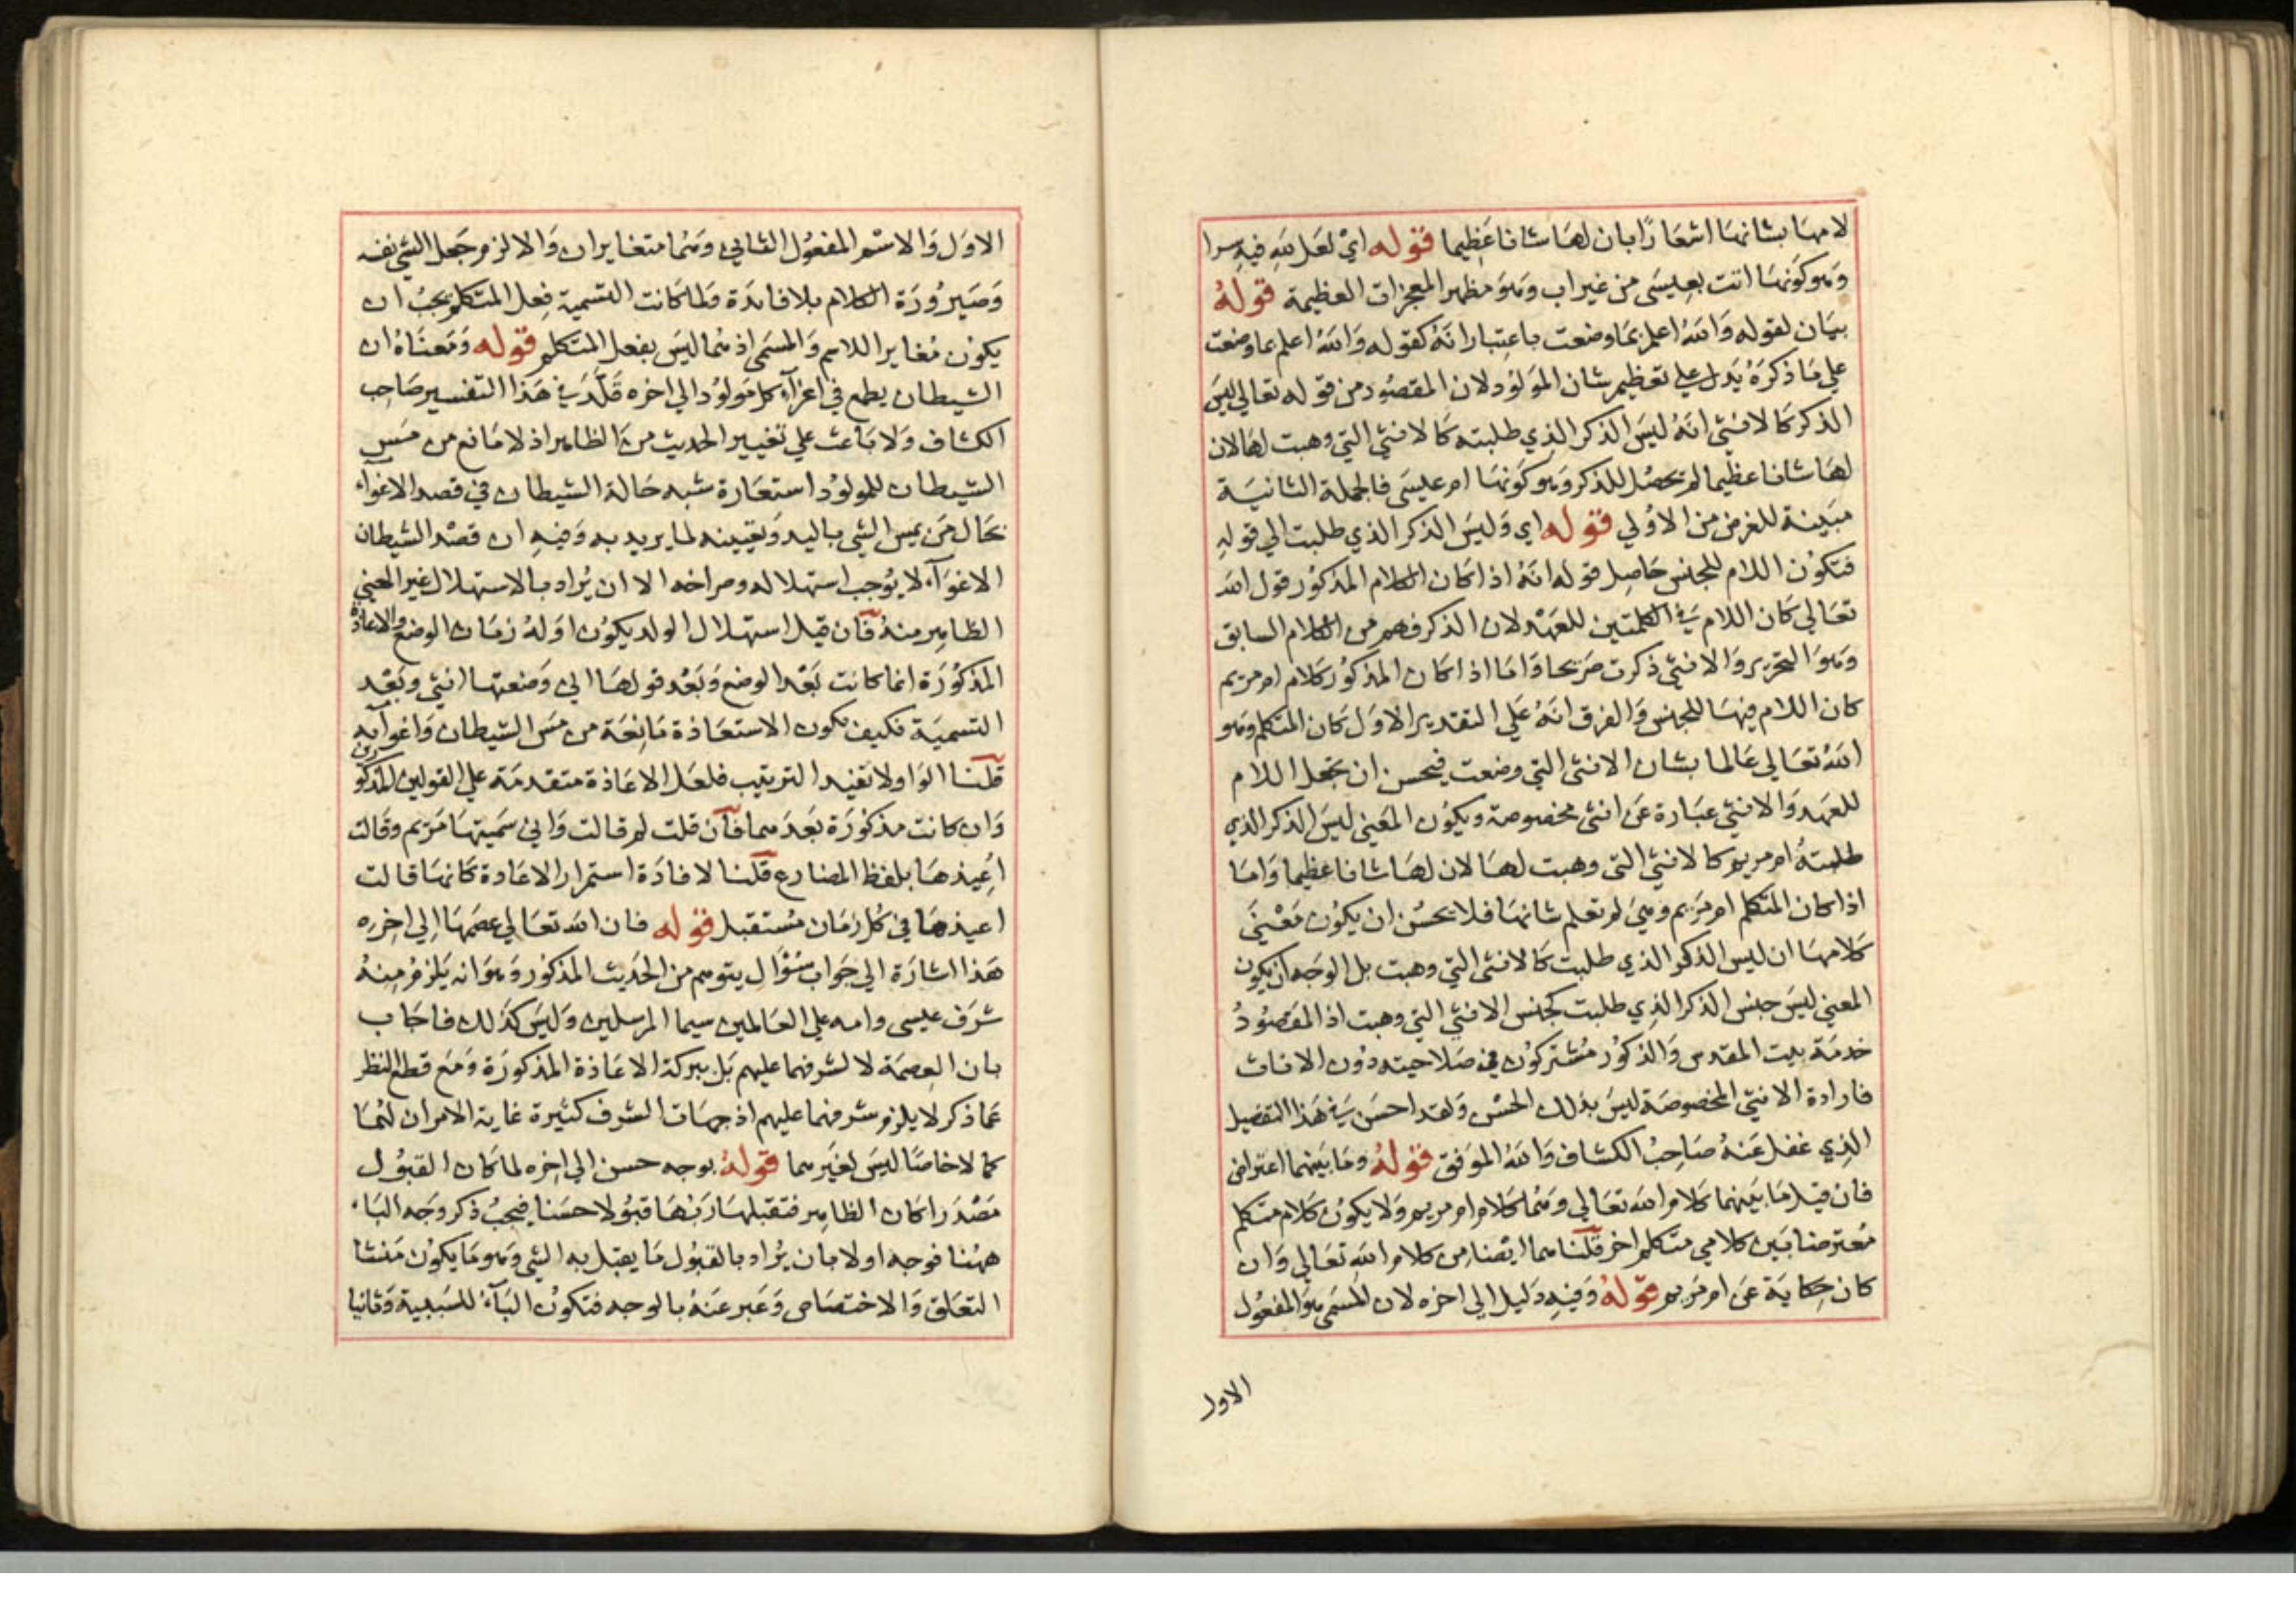 لامها بشانها اشعارًا بان لها شانا عظيما قوله اي لعل لله فيه سرا
وهو كونها اتت بعيسى من غير اب وهو مظهر المعجزات العظيمة قوله
بيان لقوله والله اعلم بما وضعت باعتبار انه كقوله والله اعلم بما وضعت
علي ما ذكره يدل علي تعظيم شان المولود لان المقصود من قوله تعالي ليس
الذكر كالانثي انه ليس الذكر الذي طلبته كالانثي التي وهبت لها لان
لها شانا عظيما لم يحصل للذكر وهو كونها ام عليسى فالجملة الثانية
مبينة للغرض من الاولي قوله اي وليس الذكر الذي طلبت الي قوله
فتكون اللام للجنس حاصل قوله انه اذا كان الكلام المذكور قول الله
تعالي كان اللام في الكلمتين للعهد لان الذكر فهم من الكلام السابق
وهو التحرير والانثي ذكرت صريحا واما اذا كان المذكور كلام ام مريم
كان اللام فيها للجنس والفرق انه علي التقدير الاول كان المتكلم وهو
الله تعالي عالما بشان الانثي التي وضعت فيحسن ان يجعل اللام
للعهد والانثي عبارة عن انثي مخصوصة ويكون المعني ليس الذكر الذي
طلبته ام مريم كالانثي التي وهبت لها لان لها شانا عظيما واما
اذا كان المتكلم ام مريم وهي لم تعلم شانها فلا يحسن ان يكون معنيَ
كلامها ان ليس الذكر الذي طلبت كالانثي التي وهبت بل الوجه ان يكون
المعني ليس جنس الذكر الذي طلبت كجنس الانثي التي وهبت اذ المقصود
خدمة بيت المقدس والذكور مشتركون في صلاحيته دون الاناث
فارادة الانثي المخصوصة ليس بذلك الحسن ولقد احسن في هذا التفصيل
الذي غفل عنه صاحب الكشاف والله الموفق قوله وما بينهما اعتراض
فان قيل ما بينهما كلام الله تعالي وهما كلام ام مريم ولا يكون كلام متكلم
معترضا بين كلامي متكلم اخر قلنا هما ايضا من كلام الله تعالي وان
كان حكاية عن ام مريم قوله وفيه دليل الي اخره لان المسمي هو المفعول
الاول
الاول والاسم المفعول الثاني وهما متغايران والا لزم جعل الشي نفسه
وصيرورة الكلام بلا فايدة ولما كانت التسمية فعل المتكلم يجب ان
يكون مغايرا للاسم والمسمي اذ هما ليس بفعل المتكلم قوله ومعناه ان
الشيطان يطمع في اغرآء كل مولود الي اخره قلد في هذا التفسير صاحب
الكشاف ولا باعث علي تغيير الحديث من الظاهر اذ لا مانع من مس
الشيطان للمولود استعارة شبه حالة الشيطان في قصد الاغوآء
بحال من يمس الشي باليد ويعيينه لما يريد به وفيه ان قصد الشيطان
الاغوآء لا يوجب استهلاله وصراخه الا ان يراد بالاستهلال غير المعني
الظاهر منه فان قيل استهلال الولد يكون اوله زمان الوضع والاعاذة
المذكورة انما كانت بعد الوضع وبعد قولها اني وضعتها انثي وبعد
التسمية فكيف تكون الاستعاذة مانعة من مس الشيطان واغوآيه
قلنا الواو لا تفيد الترتيب فلعل الاعاذة متقدمة علي القولين المذكورين
وان كانت مذكورة بعدهما فان قلت لم قالت واني سميتها مريم وقالت
اعيذها بلفظ المضارع قلنا لافادة استمرار الاعادة كانها قالت
اعيذها في كل زمان مستقبل قوله فان الله تعالي عصمها الي اخره
هذا اشارة الي جواب سؤال يتوهم من الحديث المذكور وهو انه يلزم منه
شرف عيسى وامه علي العالمين سيما المرسلين وليس كذلك فاجاب
بان العصمة لا لشرفهما عليهم بل ببركة الاعاذة المذكورة ومع قطع النظر
عما ذكر لا يلزم شرفهما عليهم اذ جهات الشرف كثيرة غاية الامر ان لهما
كمالا خاصا ليس لغيرهما قوله بوجه حسن الي اخره لما كان القبول
مصدرا كان الظاهر فتقبلها ربها قبولا حسنا فيجب ذكر وجه الباء
ههنا فوجه اولا بان يراد بالقبول ما يقبل به الشي وهو ما يكون منشا
التعلق والاختصاص وعبر عنه بالوجه فتكون البآء للسببية وثانيا